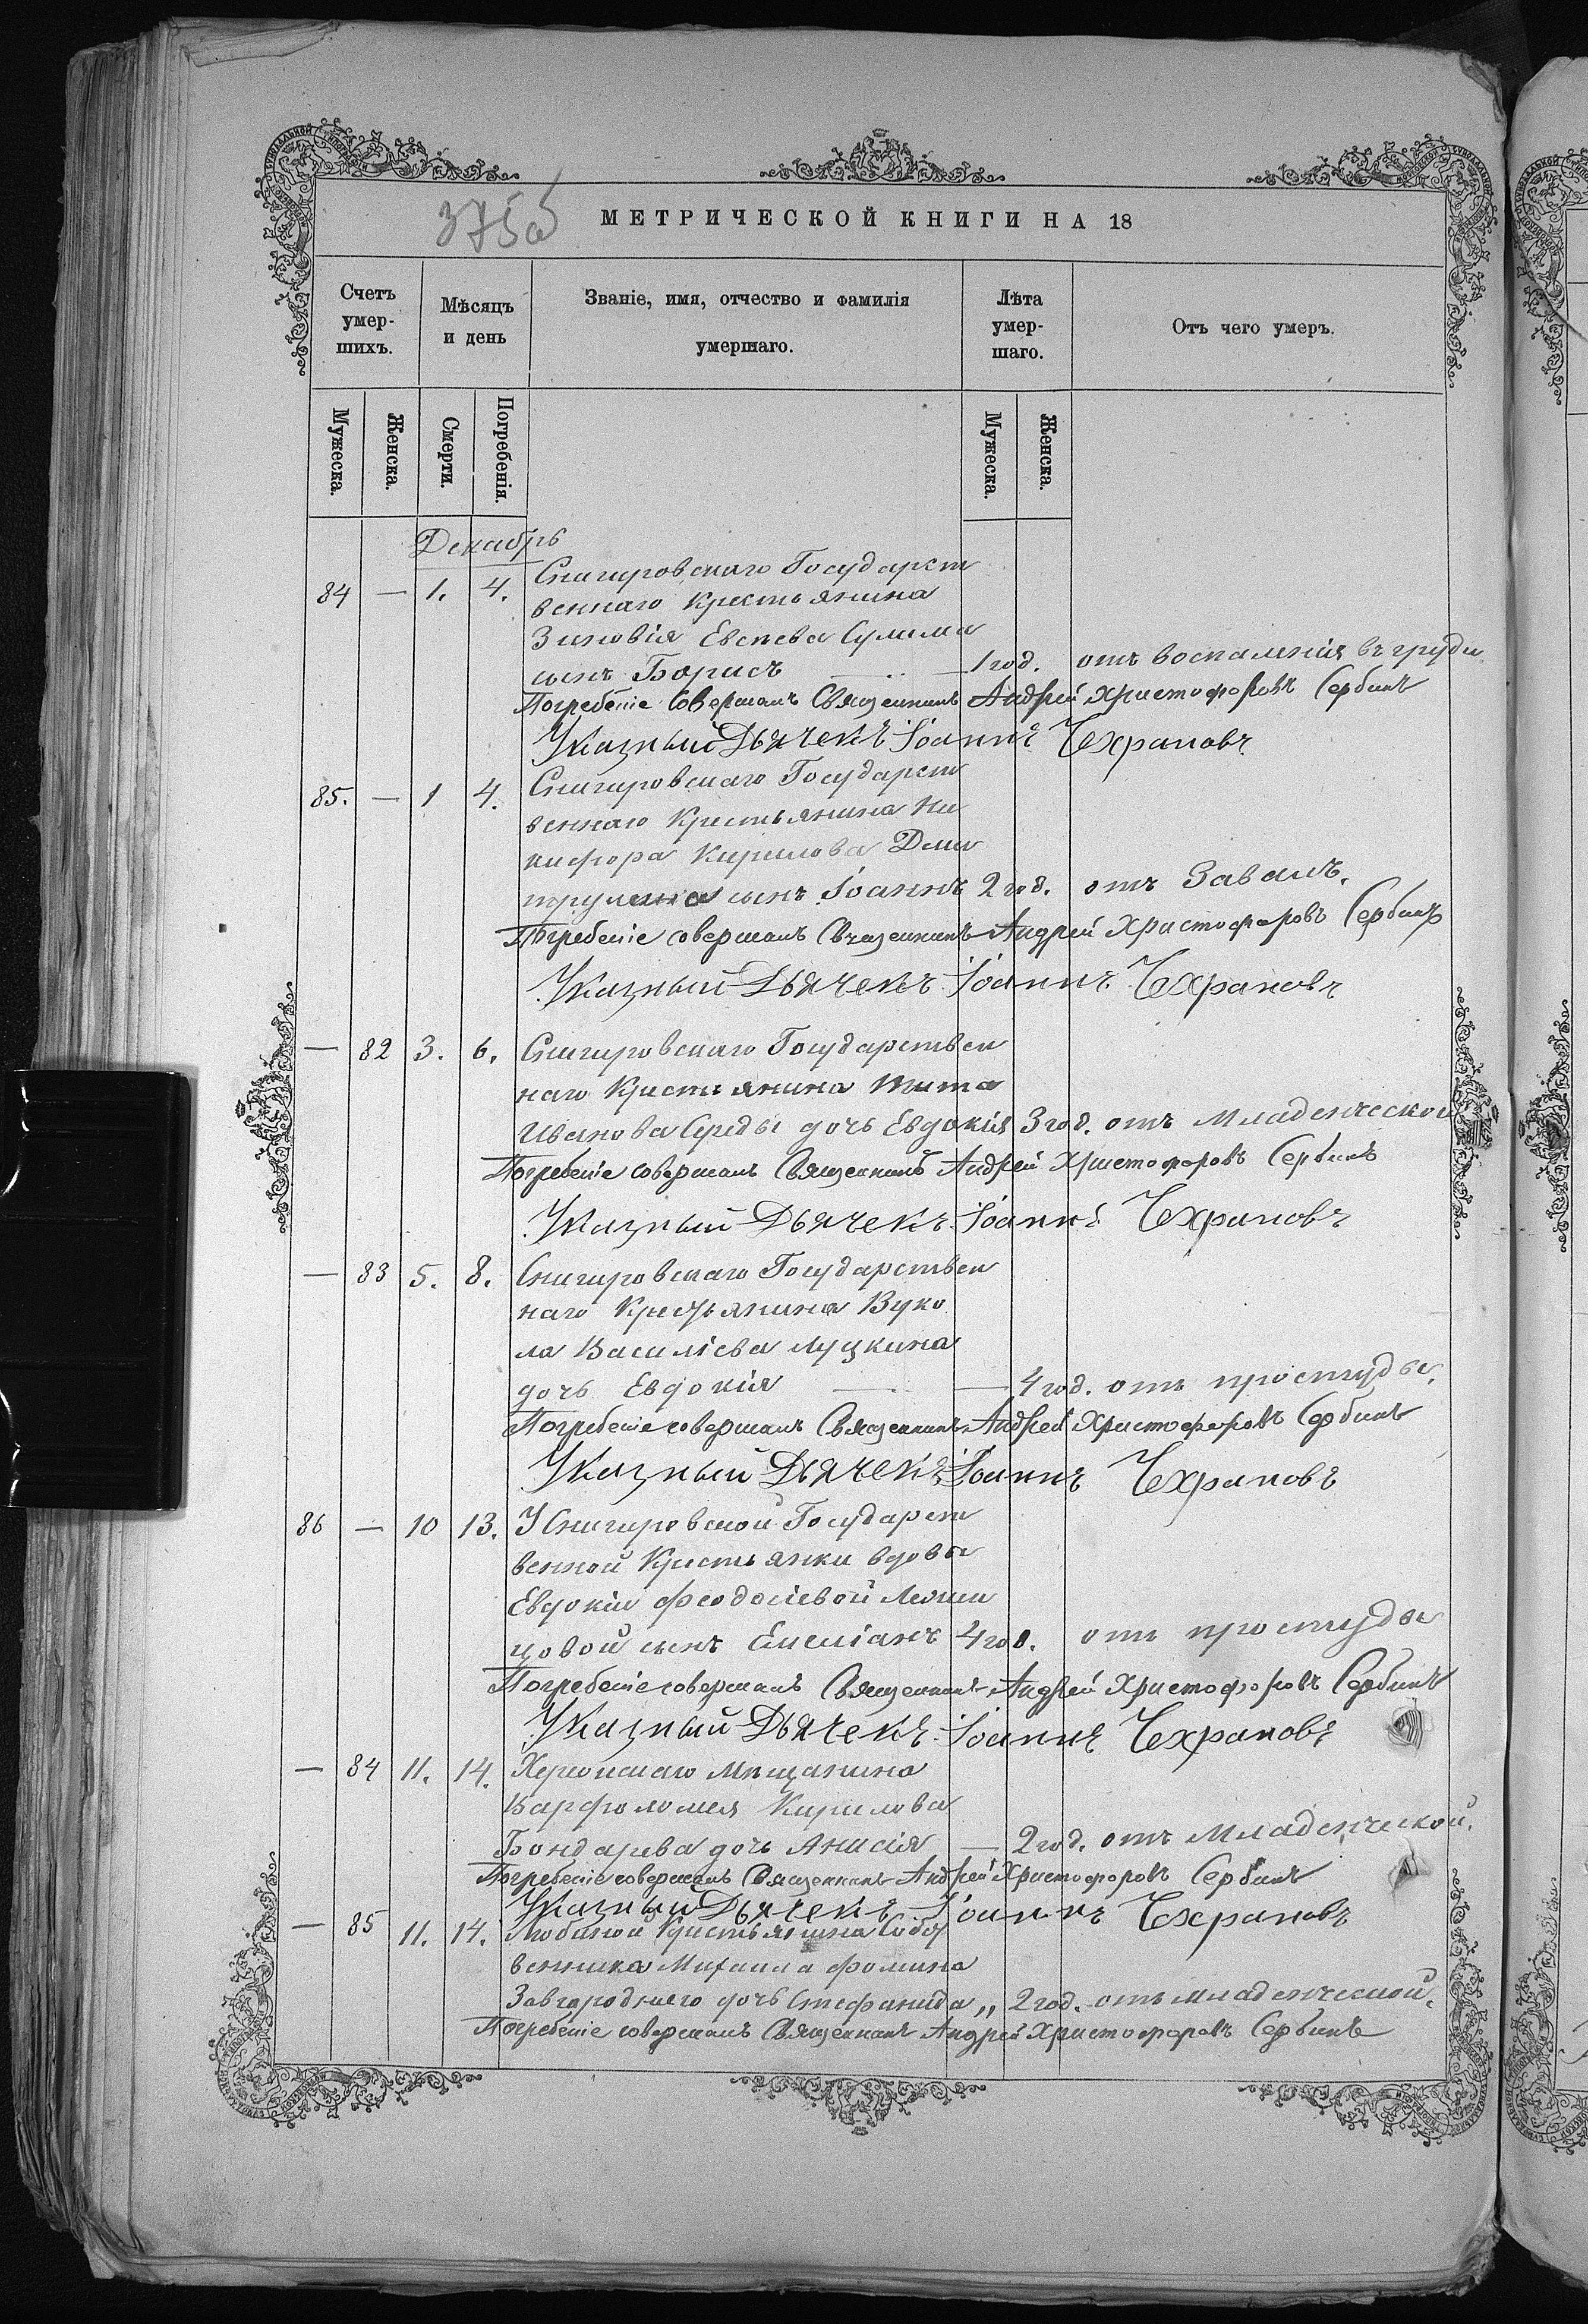 375об
МЕТРИЧЕСКОЙ КНИГИ НА 18
Счетъ умер-шихъ.
Мѣсяцъ и день
Званіе, имя, отчество и фамилія умершаго.
Лѣта умер-шаго.
Отъ чего умеръ.
Мужеска.
Женска.
Смерти.
Погребенія.
Мужеска.
Женска.
Декабрь
84 — 1. 4. Снигировскаго Государст
веннаго крестьянина
Зиновія Евсѣева Сулима
сынъ Борисъ — 1 год. отъ воспаленія въ груди
Погребеніе совершалъ Священникъ Андрей Христофоровъ Сербинъ
Указный Дьячекъ Іоаннъ Чехрановъ
85. — 1 4. Снигировскаго Государст
веннаго Крестьянина Ни
кифора Кирилова Дми
сынъ Іоаннъ 2 год. отъ Завалъ.
Погребеніе совершалъ Священникъ Андрей Христофоровъ Сербинъ
Указный Дьячекъ Іоаннъ Чехрановъ
— 82 3. 6. Снигировскаго Государствен
наго Крестьянина Тита
Иванова Середы дочь Евдокія 3 год. отъ Младенческой
Погребеніе совершалъ Священникъ Андрей Христофоровъ Сербинъ
Указный Дьячекъ Іоаннъ Чехрановъ
— 83 5. 8. Снигировскаго Государствен
наго Крестьянина Вуко
ла Василіева Луцкина
дочь Евдокія — — 4 год. отъ простуды.
Погребеніе совершалъ Священникъ Андрей Христофоровъ Сербинъ
Указный Дьячекъ Іоаннъ Чехрановъ
86 — 10 13. У Снигировской Государст
венной Крестьянки вдовы
Евдокіи Феодосіевой
цовой сынъ Емеліанъ 4 год. отъ простуды
Погребеніе совершалъ Священникъ Андрей Христофоровъ Сербинъ
Указный Дьячекъ Іоаннъ Чехрановъ
— 84 11. 14. Херсонскаго Мѣщанина
Варфоломея Кирилова
Бондарева дочь Анисія — 2 год. отъ Младенческой.
Погребеніе совершалъ Священникъ Андрей Христофоровъ Сербинъ
Указный Дьячекъ Іоаннъ Чехрановъ
— 85 11. 14. Крестьянина Собст
венника Михаила Фомина
Завгородняго дочь Стефанида „ 2 год. отъ младенческой.
Погребеніе совершалъ Священникъ Андрей Христофоровъ Сербинъ